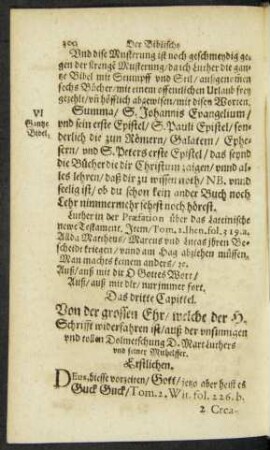 300 Der Biblische
Vnd dise Musterung ist noch geschmeydig ge-
gen der strenge Musterung/ daich Luther die gan-
tze Bibel mit Stumpff vnd Stil/ außgenomen
sechs Bücher/ mit einem offentlichen Vrlaub frey
gezehlt/ vñ höfflich abgewisen/ mit disen Worten.
VI
Gantze
Bibel.
Summa/ S. Johannis Evangelium/
vnd sein erste Epistel/ S. Pauli Epistel/ son-
derlich die zun Römern/ Galatern/ Ephe-
sern/ vnd S. Peters erste Epistel/ das seynd
die Bücher die dir Christum zaigen/ vnnd al-
les lehren/ daß dir zu wissen noth/ NB. vnnd
seelig ist/ ob du schon kein ander Buch noch
Lehr nimmermehr sehest noch hörest.
Luther in der Præfation über das Lateinische
newe Testament. Item/ Tom. 1. Ihen. fol. 319. a.
Allda Mattheus/ Marcus vnd Lucas jhren Be-
scheidt kriegen/ vnnd am Hag abziehen müssen.
Man machts keinem anders/ zc.
Auß/ auß mit dir O Gottes Wort/
Auß/ auß mit dir/ nur jmmer fort.
Das dritte Capittel.
Von der grossen Ehr/ welche der H.
Schrifft widerfahren ist/ auß der vnsinnigen
vnd tollen Dolmetschung D. Mart. Luthers
vnd seiner Mithelffer.
Erstlichen.
DEus, hiesse vorzeiten/ Gott/ jetzo aber heist es
Guck Guck/ Tom. 2. Wit. fol. 226. b.
2 Crea-